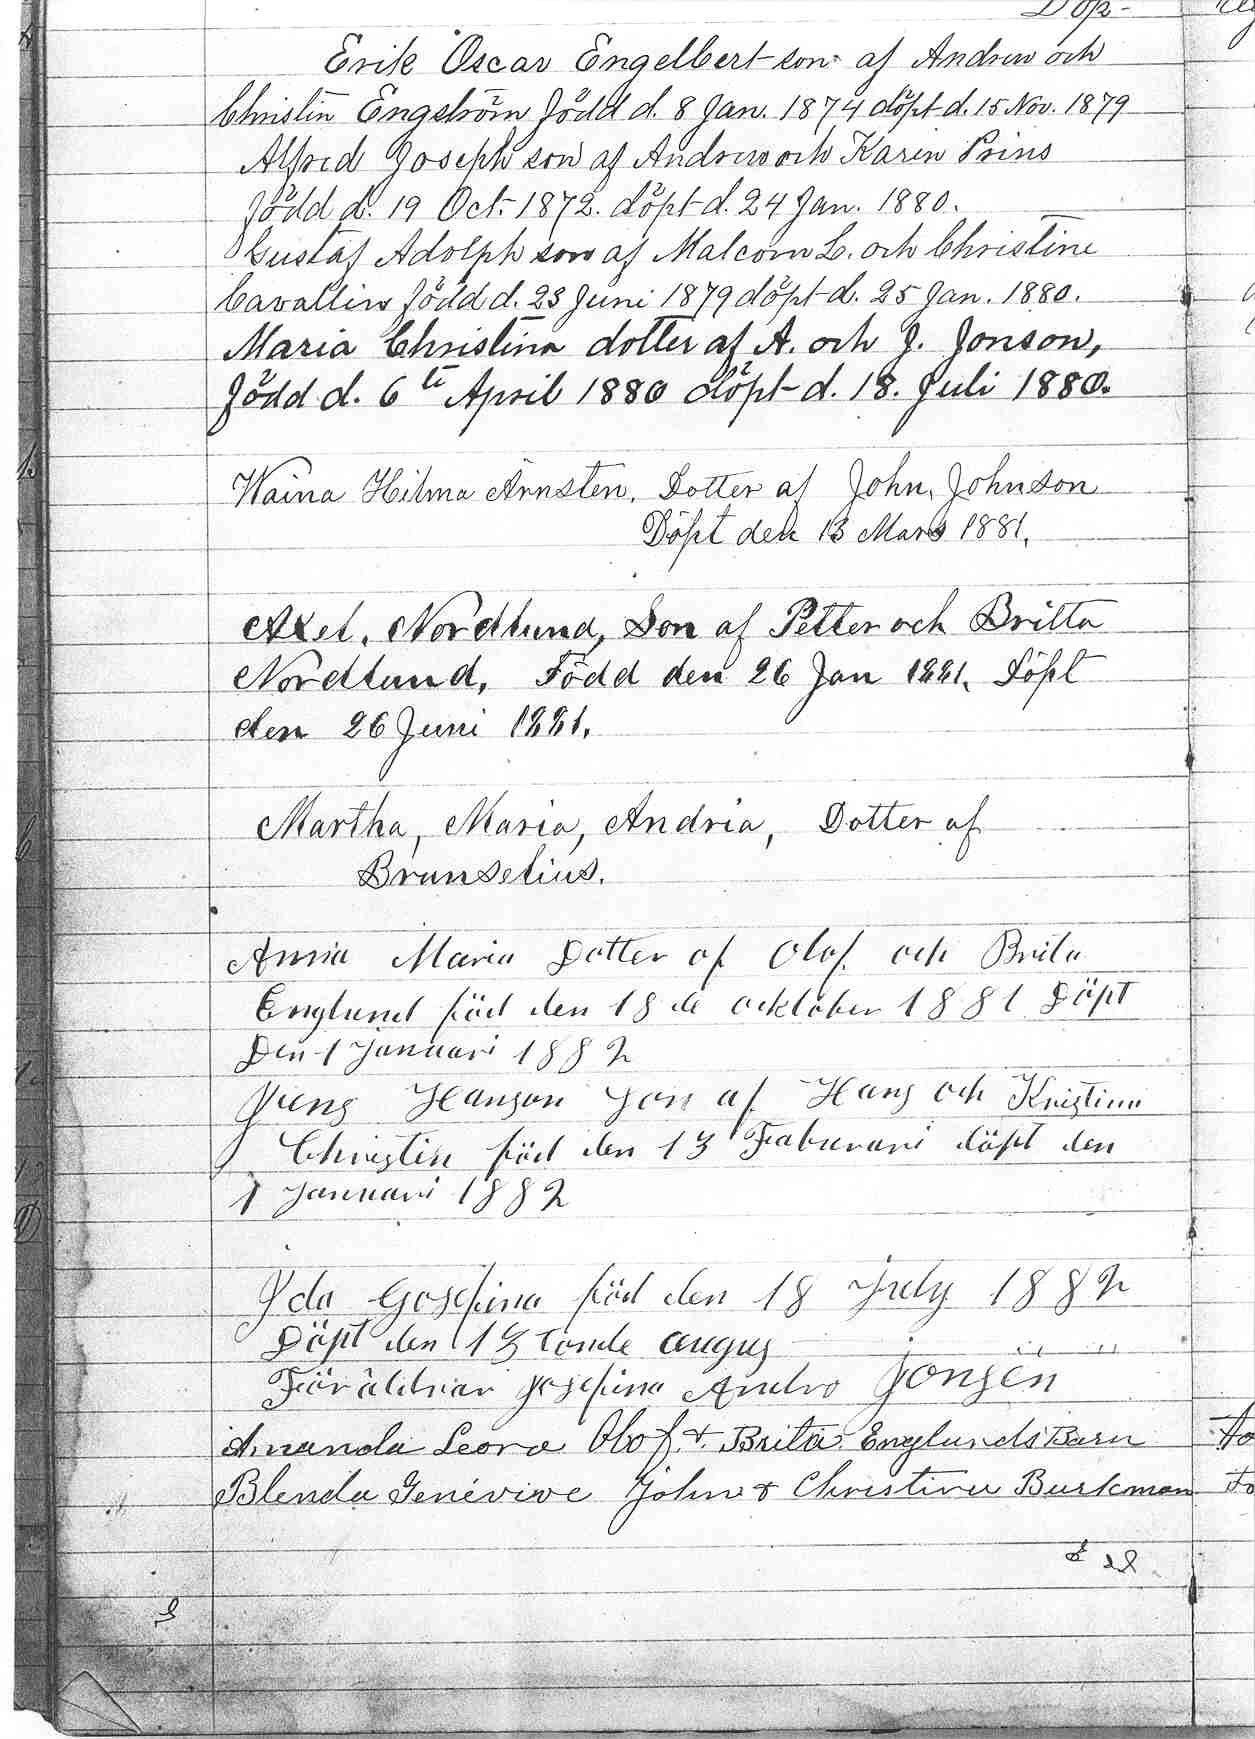 Döp-
Erik Oscar Engelbert son af Andrew och
Christin Engström född d. 8 Jan. 1874 döpt d. 15 Nov. 1879
Alfred Joseph son af Andrew och Karin Prins
född d. 19 Oct. 1872. döpt d. 24 Jan. 1880.
Gustaf Adolph son af Malcom L. och Christine
Cavallin född d. 23 Juni 1879 döpt d. 25 Jan. 1880.
Maria Christina dotter af A. och J. Jonson,
född d. 6te April 1880 döpt d. 18. Juli 1880.
Waina Hilma Arnsten, Dotter af John, Johnson
Döpt den 13 Mars 1881,
Axel, Nordlund, Son af Petter och Britta
Nordlund, Född den 26 Jan 1881, Döpt
den 26 Juni 1881,
Martha, Maria, Andria, Dotter af
Brunselius.
Anna Maria Dotter af Olof. och Brita
Englund föd den 18 de ocktober 1881 Döpt
Den 1 Januari 1882
Jens Hanson Son af Hans och Kristina
Christin föd den 13 Faburari döpt den
1 Januari 1882
Ida Gosefina föd den 18 July 1882
Döpt den 13 tonde augus
Föräldrar Josefina Andro Jonsën
Amanda Leora Olof. + Brita Englunds Barn
Blenda Genevive John & Christine Burkman